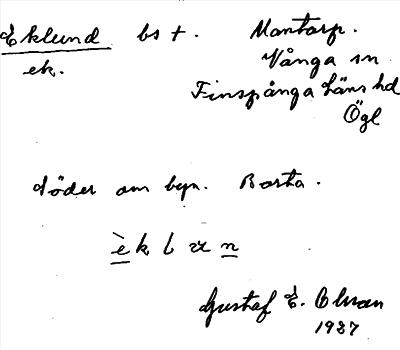 Eklund bs t. Mantorp.
ek. Vånga sn
Finspånga läns hd
Ögl
söder om byn. Borta.
è k l u n
Gustaf E. Olsson
1927